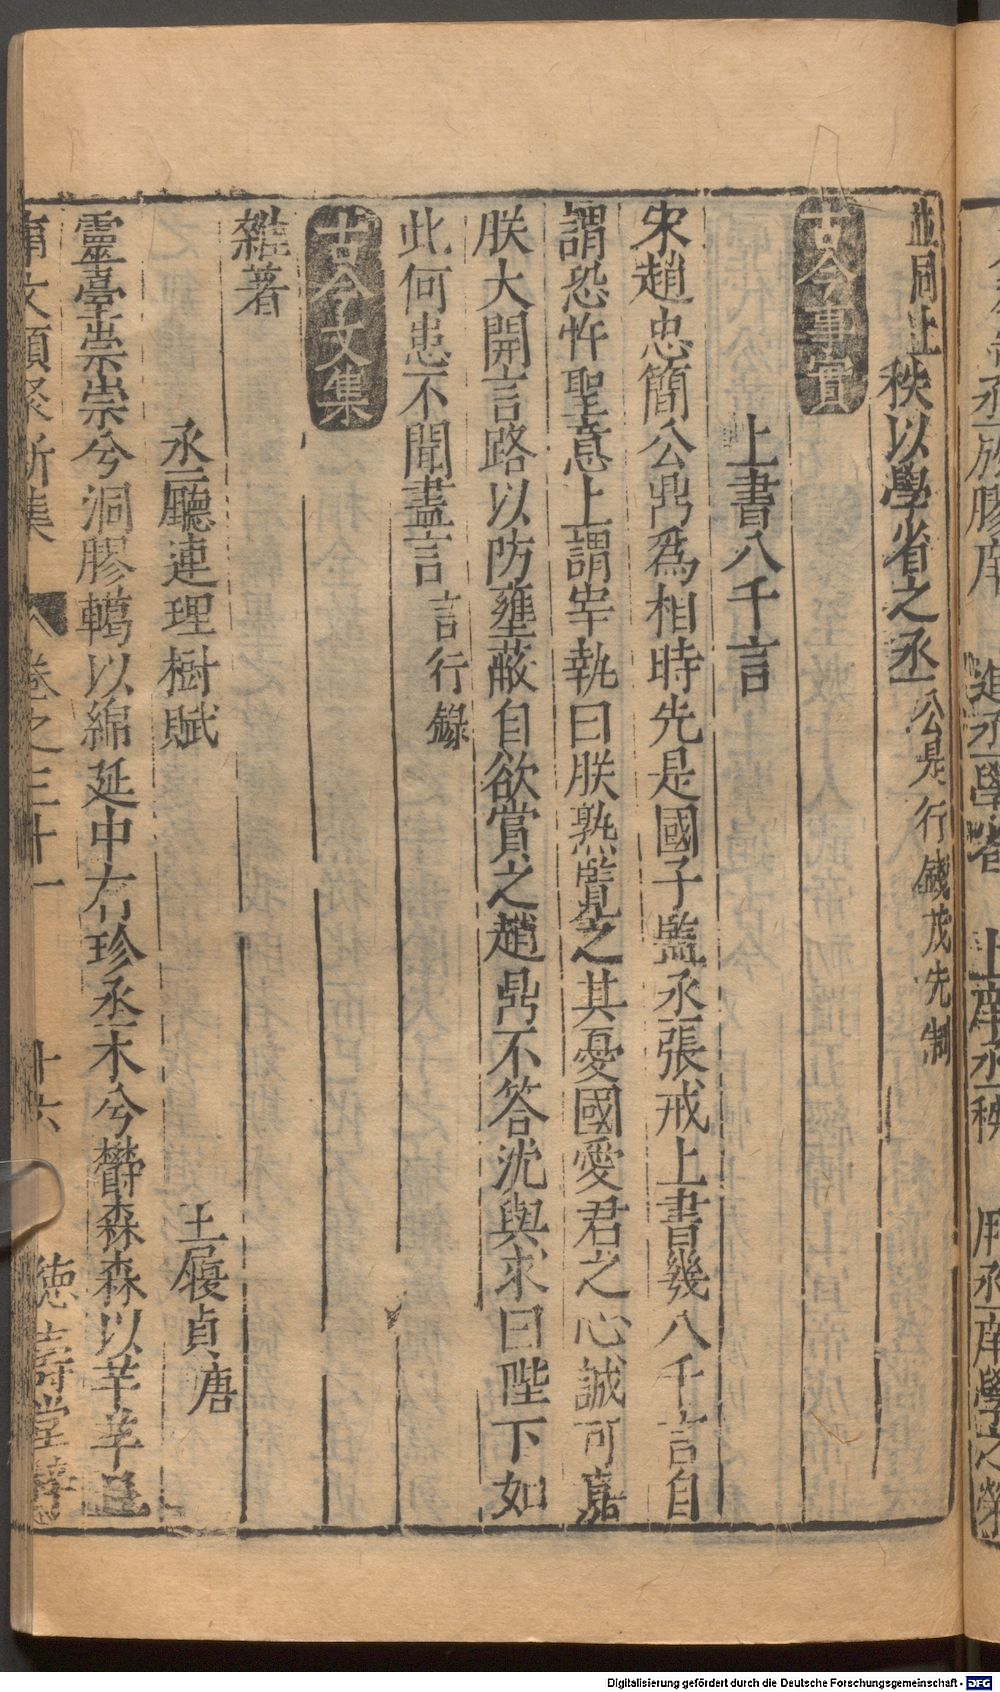 進丞學省　上庠丞秩　丞南學之榮
並同上　秩以學省之丞　公是行錢茂先制
古今事實
上書八千言
宋趙忠簡公鼎為相時先是國子監丞張戒上書幾八千言自
謂恐忤聖意上謂宰執曰朕熟覽之其憂國愛君之心誠可嘉
朕大開言路以防壅蔽自欲賞之趙鼎不答沈與求曰陛下如
此何患不聞盡言　言行錄
古今文集
雜著
丞廳連理樹賦　王履貞 唐
靈臺崇崇兮洞膠轕以綿延中有珍丞木兮欝森森以芊芊
事文類聚新集　卷之三十一　十六　德壽堂梓
Digitalisierung gefördert durch die Deutsche Forschungsgemeinschaft - DFG